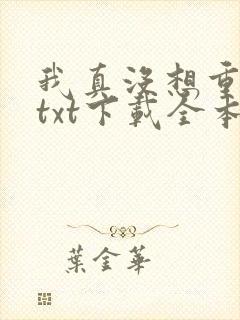 我真没想重
txt下载全本
葉金華